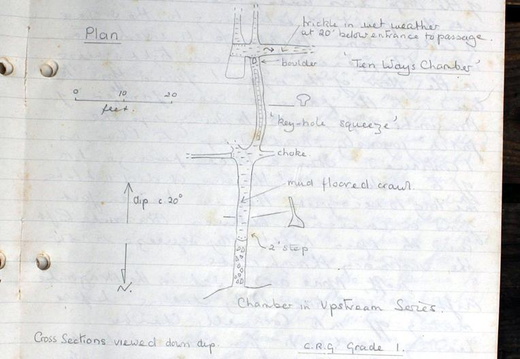 Plan
trickle in wet weather
at 20' below entrance to passage.
boulder
'Ten Ways Chamber'
0 10 20
feet.
'key-hole squeeze'
choke
dip c.20°
mud floored crawl
2' step
N.
Chamber in Upstream Series.
Cross Sections viewed down dip.
C.R.G Grade 1.